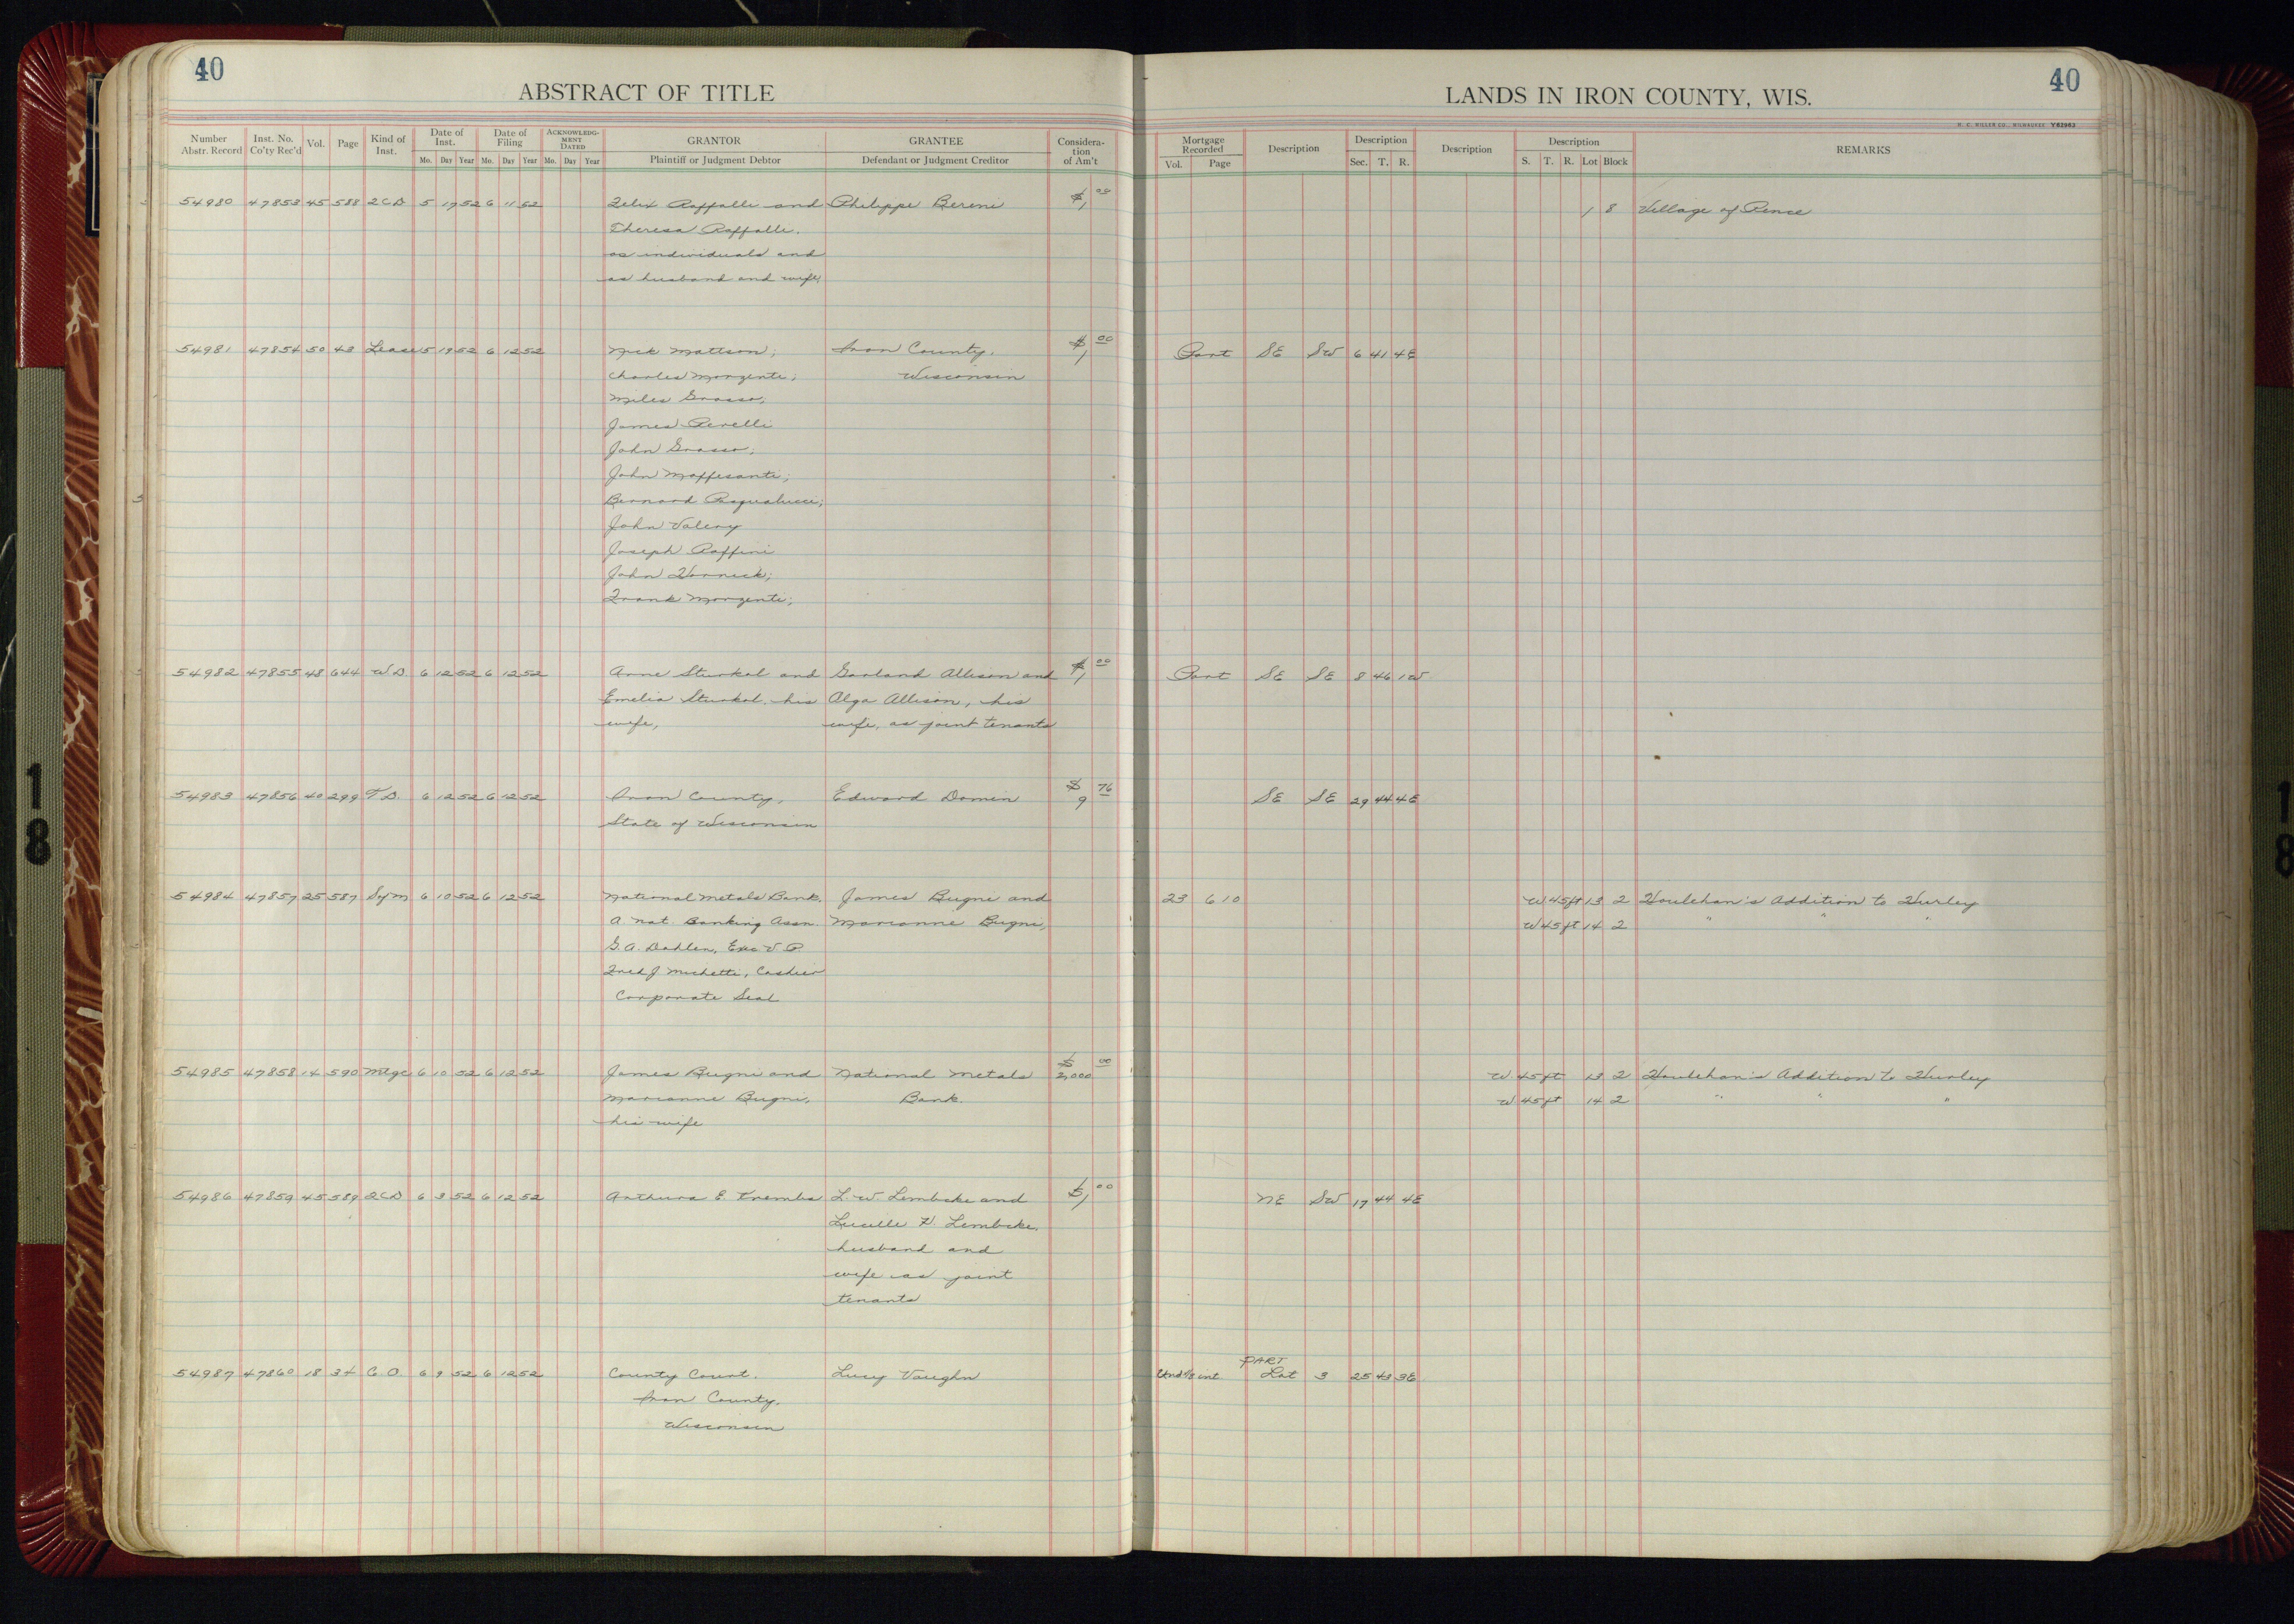 40
ABSTRACT OF TITLE
Number Abstr. Record | Inst. No. Co'ty Rec'd | Vol. | Page | Kind of Inst. | Date of Inst. Mo. Day Year | Date of Filing Mo. Day Year | ACKNOWLEDGMENT DATED Mo. Day Year | GRANTOR Plaintiff or Judgment Debtor | GRANTEE Defendant or Judgment Creditor | Consideration of Am't
54980 47853 45 588 2CD 5 17 52 6 11 52 Felix Raffalli and Philippe Bereni $1 00
Theresa Raffalli,
as individuals and
as husband and wife,
54981 47854 50 43 Lease 5 19 52 6 12 52 Nick Mattson; Iron County, $1 00
Charles Morzenti; Wisconsin
Miles Grasso;
James Perelli
John Grasso;
John Maffesanti;
Bernard Pasqualucci;
John Valery
Joseph Raffini
John Vorneck;
Frank Morzenti;
54982 47855 48 644 WD 6 12 52 6 12 52 Arne Sturkol and Garland Allison and $1 00
Emelia Sturkol, his Olga Allison, his
wife, wife, as joint tenants
54983 47856 40 299 T.D. 6 12 52 6 12 52 Iron County, Edward Domin $9 76
State of Wisconsin
54984 47857 25 587 Sof M 6 10 52 6 12 52 National Metals Bank, James Bugni and
A Nat. Banking Assn. Marianne Bugni,
G.A. Dahlen, Exec V.P.
Fred J Michetti, Cashier
Corporate Seal
54985 47858 14 590 Mtge 6 10 52 6 12 52 James Bugni and National Metals $2,000 00
Marianne Bugni, Bank.
his wife
54986 47859 45 589 2CD 6 3 52 6 12 52 Arthura E. Krembs L.W. Lembcke and $1 00
Lucille H. Lembcke,
husband and
wife as joint
tenants
54987 47860 18 34 C.O. 6 9 52 6 12 52 County Court, Lucy Vaughn
Iron County,
Wisconsin
40
LANDS IN IRON COUNTY, WIS.
H. C. MILLER CO., MILWAUKEE Y62963
Mortgage Recorded Vol. Page | Description | Description Sec. T. R. | Description | Description S. T. R. Lot Block | REMARKS
1 8 Village of Pence
Part SE SW 6 41 4E
Part SE SE 8 46 1W
SE SE 29 44 4E
23 610 W.45ft 13 2 Houlehan's Addition to Hurley
W45ft 14 2 " " "
W.45ft 13 2 Houlehan's Addition to Hurley
W.45ft 14 2 " " "
NE SW 17 44 4E
PART
Und 1/3 int Lot 3 25 43 3E
18
18